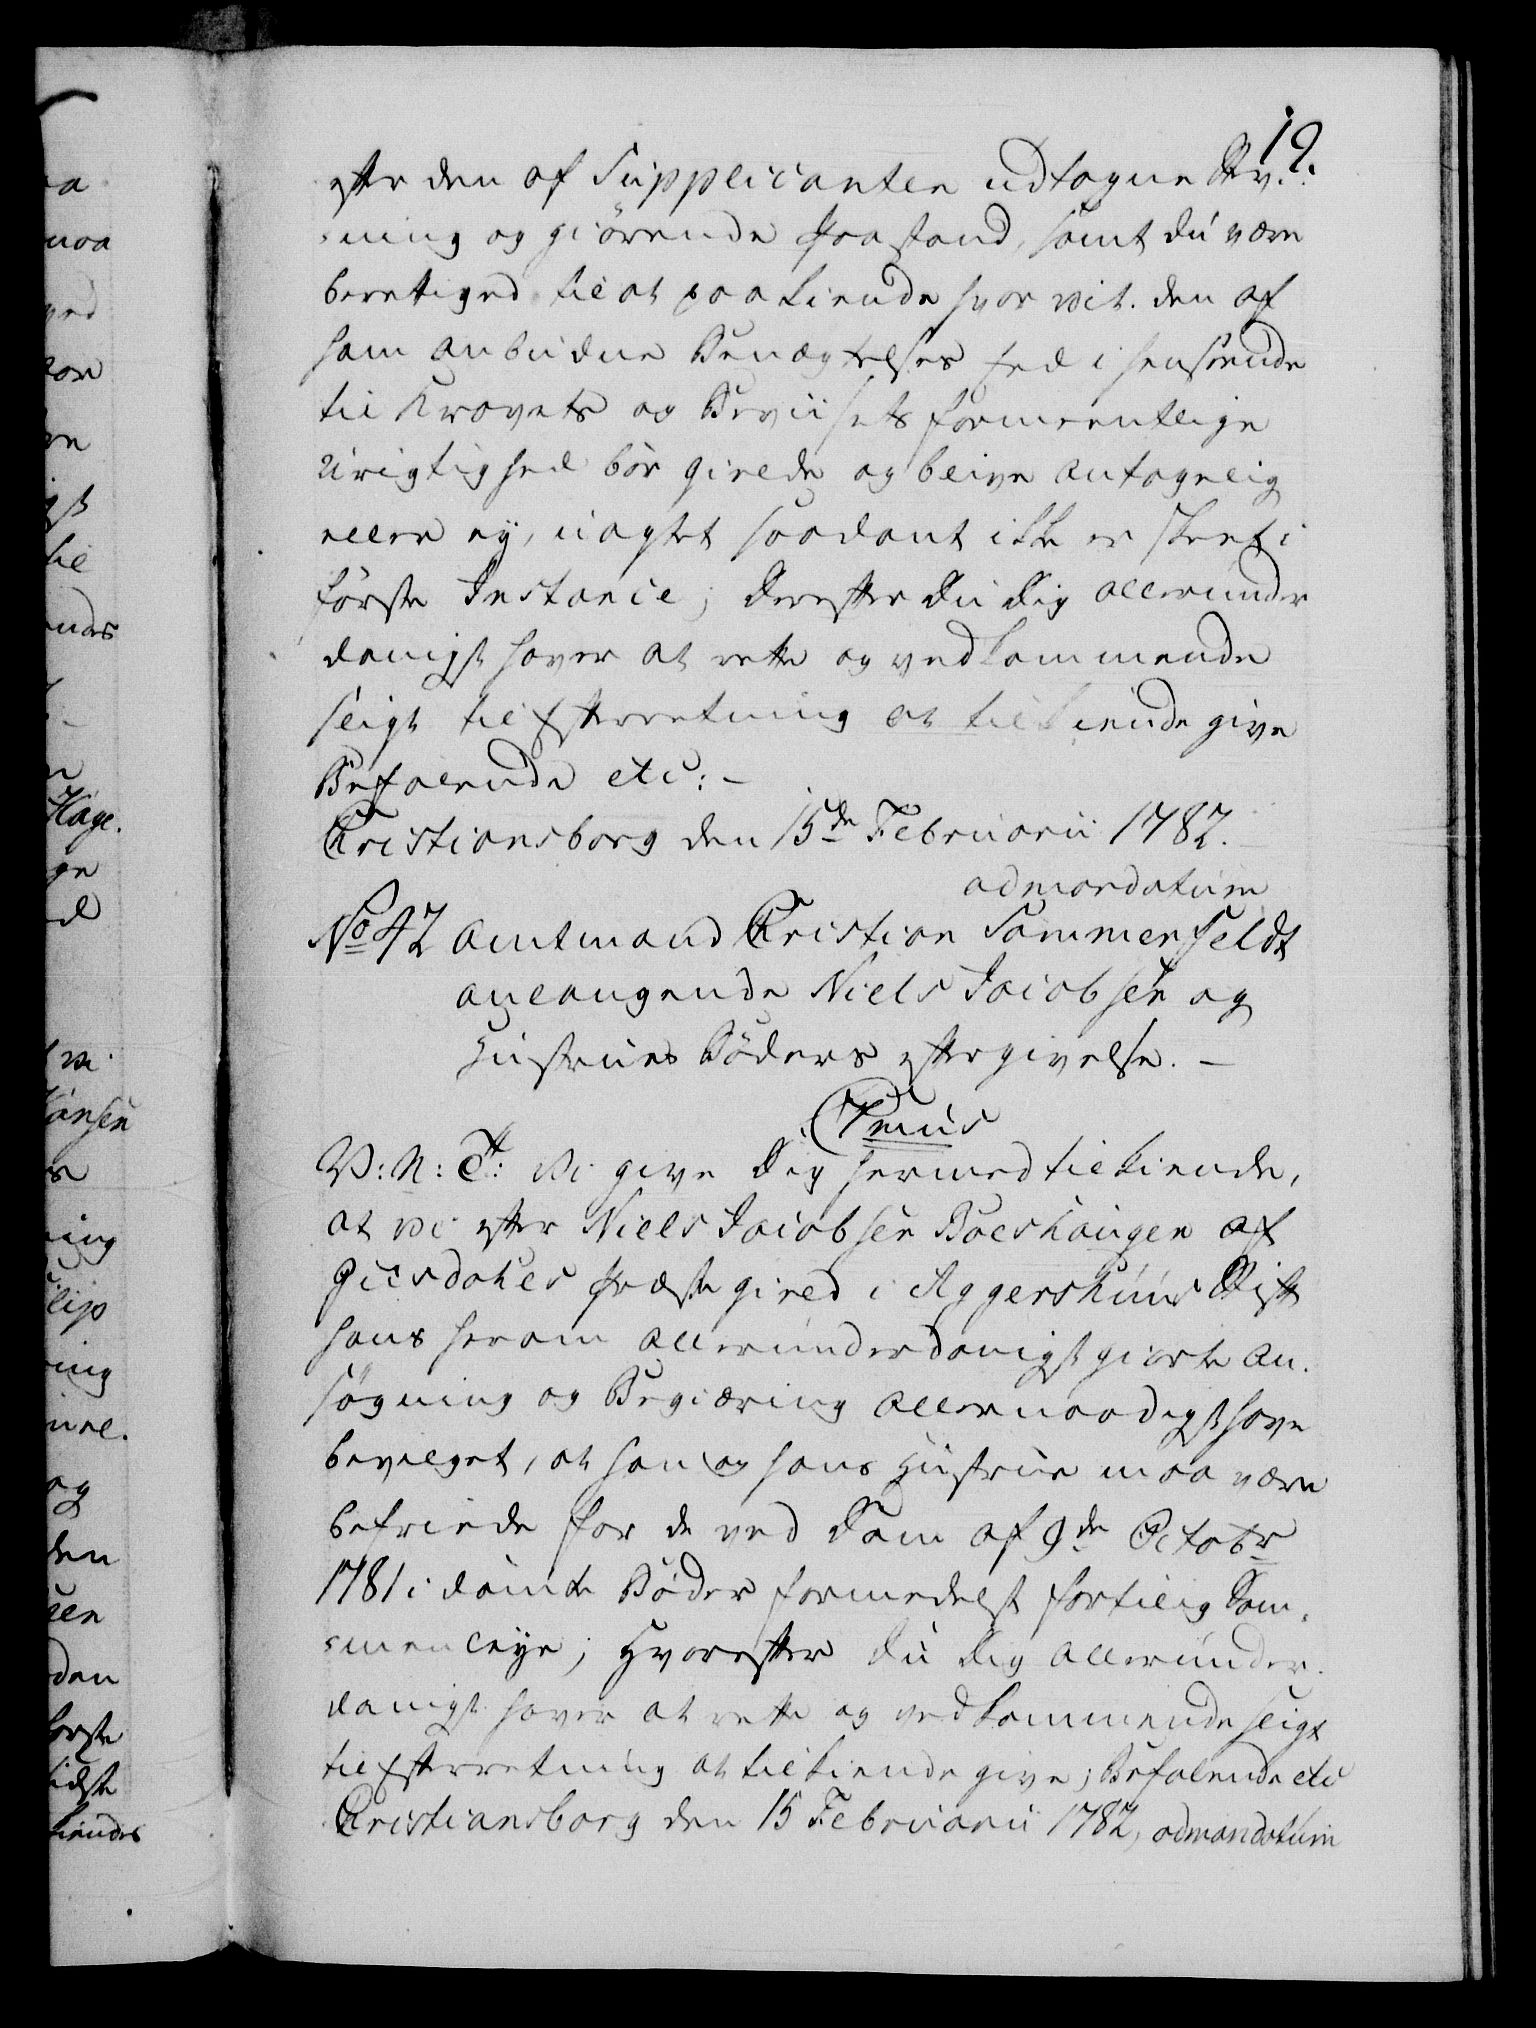 19.
efter den af Supplicanten udtagne Stev-
ning og giörende Paastand, samt du være
berettiged til at paakiende hvor vit den af
ham anbudne Benægtelses Eed i henseende
til Kravets og Beviisets formeentlige
Urigtighed bör gielde og blive antagelig
eller ey, uagtet saadant ikke er skeet i
förste Instance; Derefter du dig allerunder
danigst haver at rette og vedkommende
sligt til Efterretning at tilkiende give
Befalende etc: –
Christiansborg den 15de Februarii 1782.
admandatum
No 42 Amtmand Christian Sommerfeldt
anlangende Niels Jacobsen og
Hustrues Böders eftergivelse. –
C7mus
V: N: G: Vi give dig hermed tilkiende,
at vi efter Niels Jacobsen Boeshaugen af
Gusdahls Præstegield i Aggershuus Stift
hans herom allerunderdanigst giorte An-
sögning og Begiæring allernaadigst have
bevilget, at han og hans Hustrue maa være
befriede for de ved Dom af 9de Octobr
1781 idömte Böder formedelst fortilig Sam-
menleye; Hvorefter du dig allerunder-
danigst haver at rette og vedkommende sligt
til Efterretning at tilkiende give; Befalende etc
Christiansborg den 15 Februarii 1782, admandatum